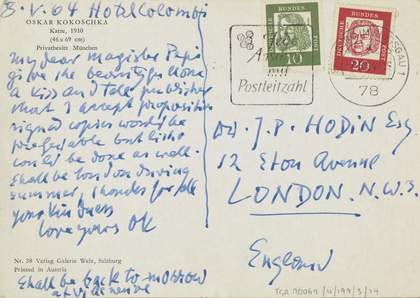 8. V. 64 Hotel Colombi
OSKAR KOKOSCHKA
Katze, 1910
(46 x 69 cm)
Privatbesitz München
My dear magister Papi
give the beautiful
a kiss and tell publisher
that I accept proposition
signed copies would be
preferable but litho
could be done as well.
Shall be London during
summer, thanks for all
your kindness
love yours OK
Nr. 38 Verlag Galerie Welz, Salzburg
Printed in Austria
Shall be back to morrow
at Villeneuve
DEUTSCHE
BUNDESPOST
10
DEUTSCHE
BUNDESPOST
20
mit
Postleitzahl
BREISGAU 1
78
J. P. HODIN Esq
12 Eton Avenue
LONDON. N.W.3.
England
TGA